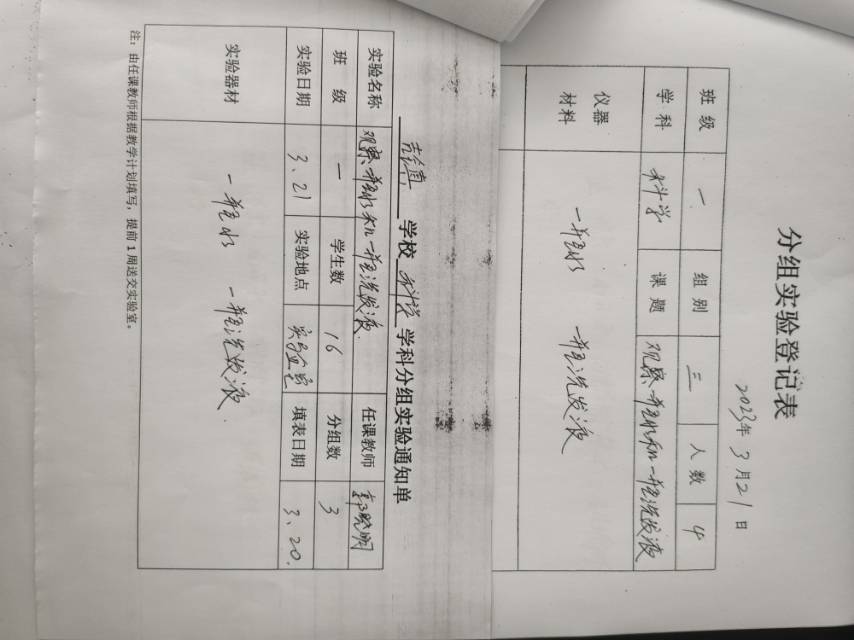 分组实验登记表
2023年3月21日
班级 一 组别 三 人数 4
学科 科学 课题 观察一瓶水和一瓶洗发液
仪器
材料
一瓶水 一瓶洗发液
学校 科学 学科分组实验通知单
实验名称 观察一瓶水和一瓶洗发液 任课教师
班级 一 学生数 16 分组数 3
实验日期 3、21 实验地点 实验室 填表日期 3、20.
实验器材 一瓶水 一瓶洗发液
注：由任课教师根据教学计划填写，提前1周送交实验室。